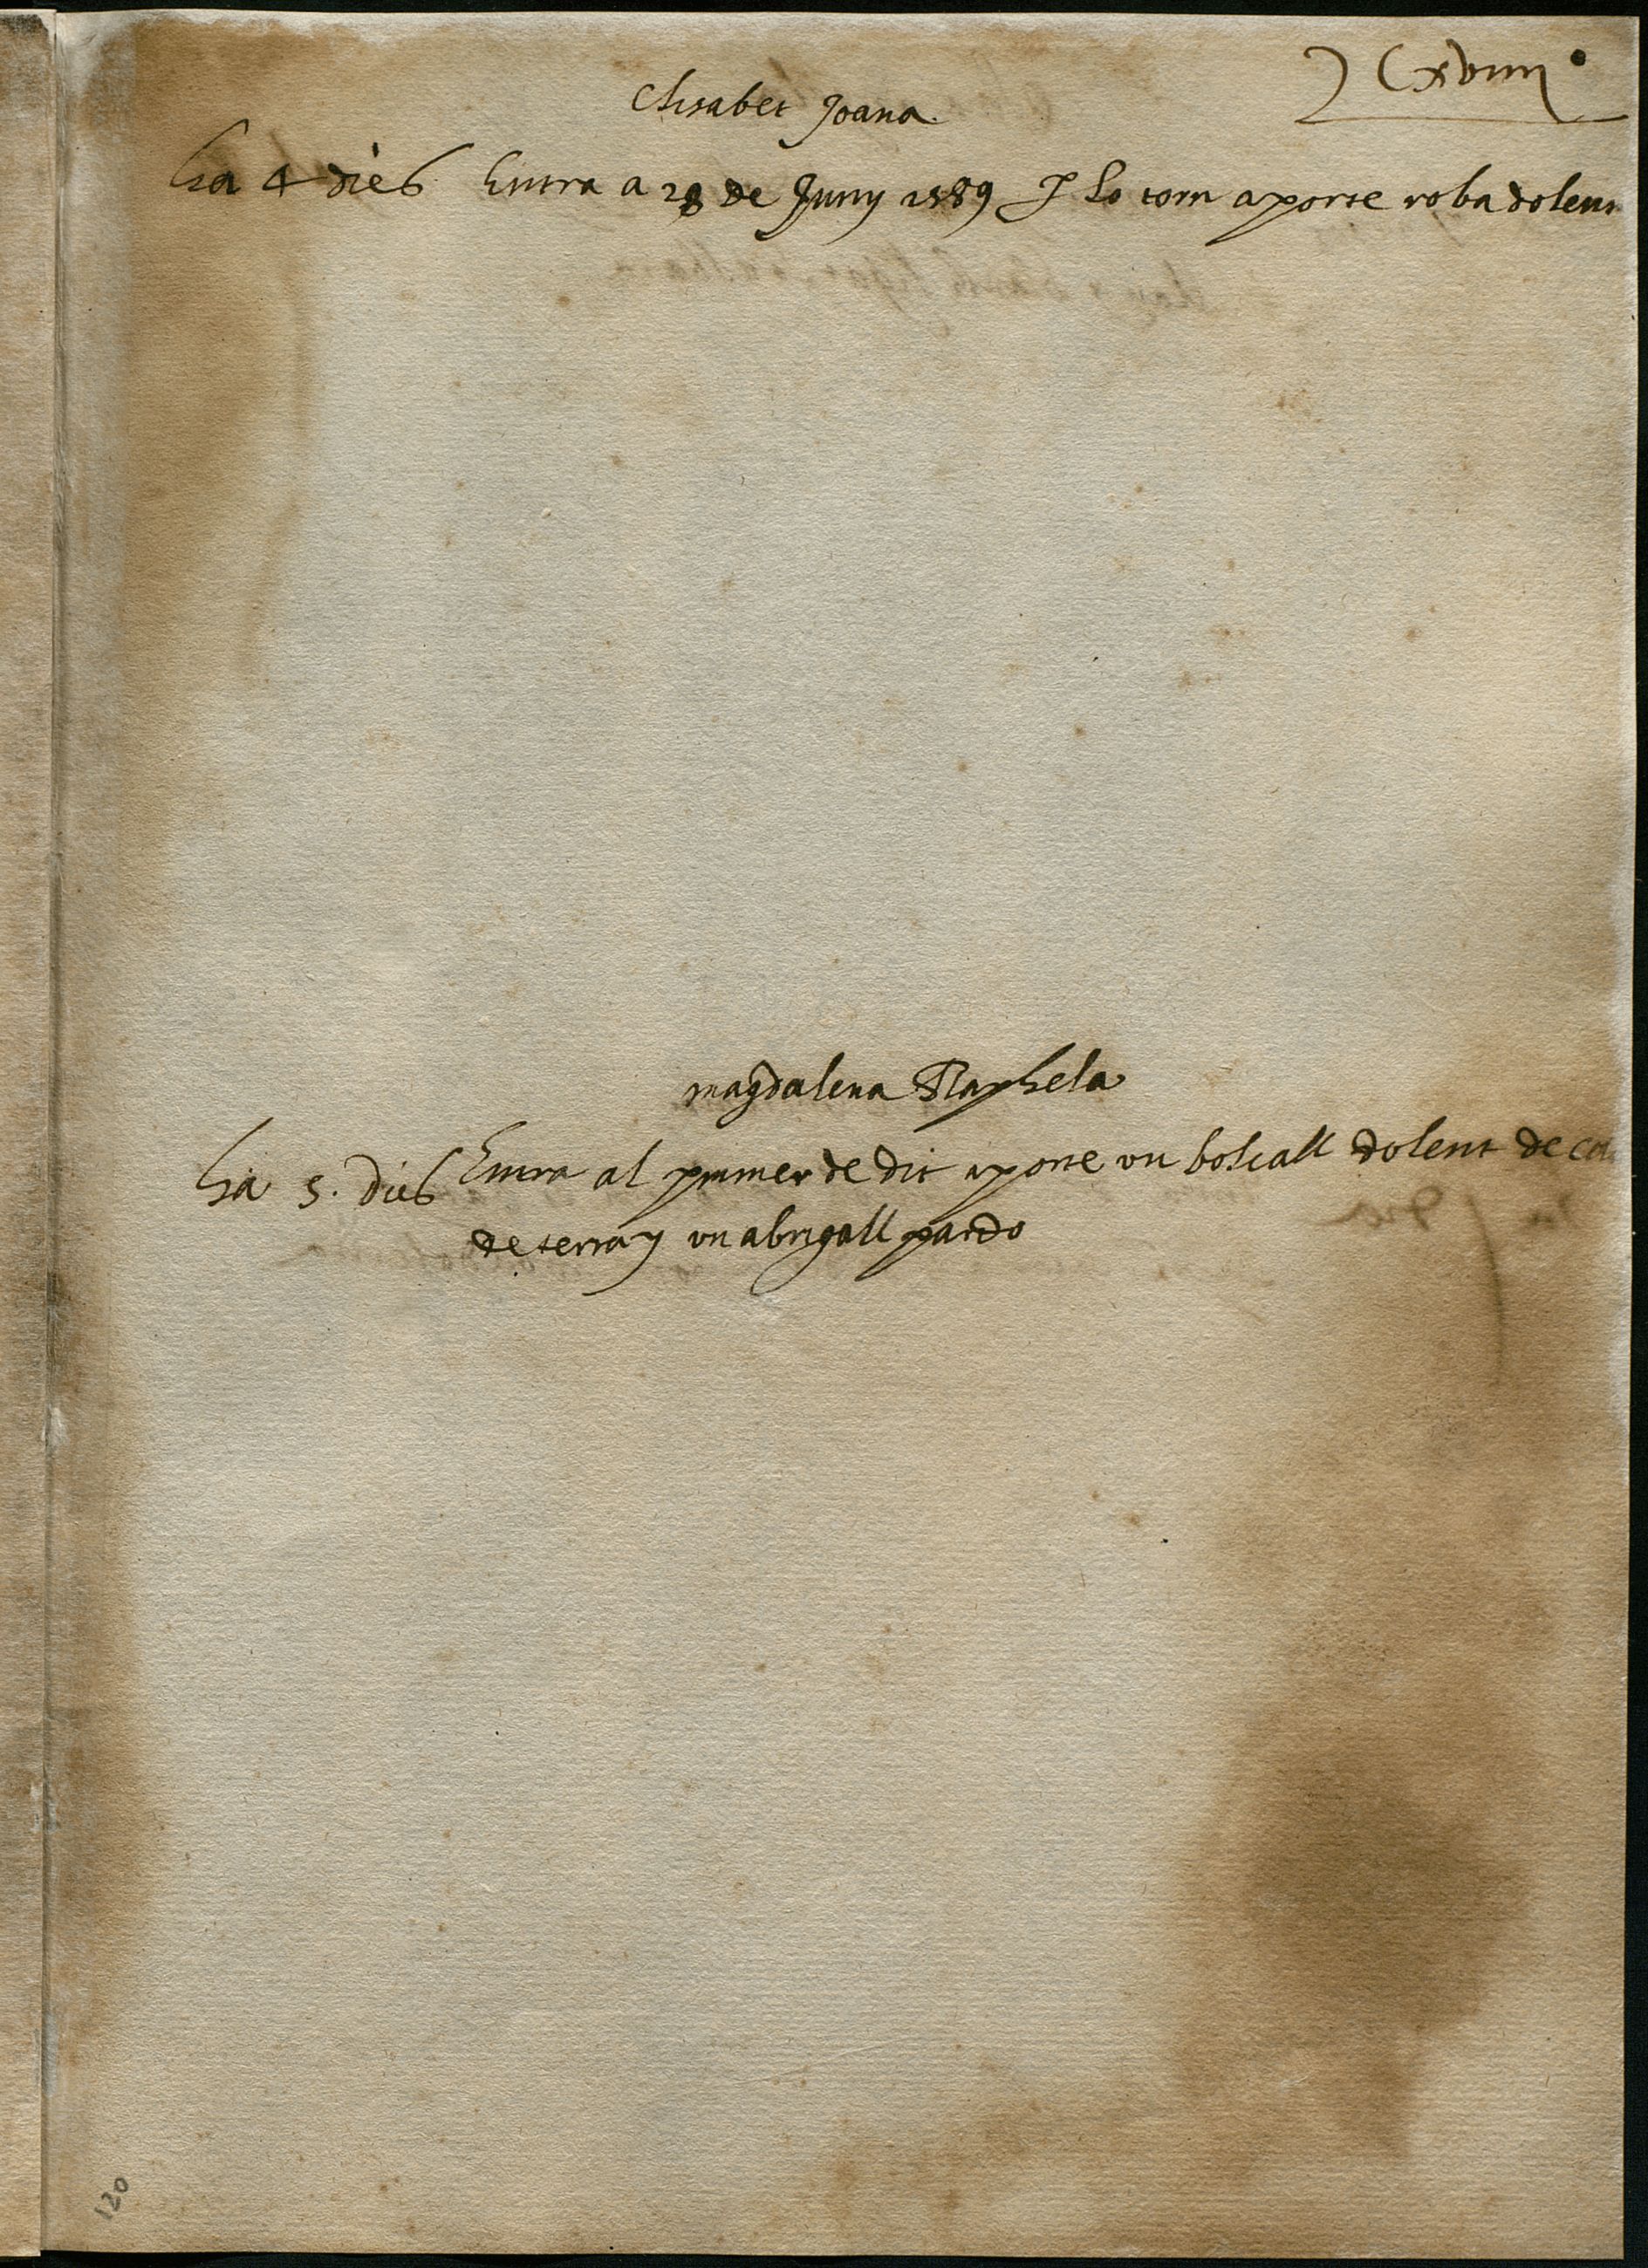 Cxviiij
Elisabet Joana.
ha 4 dies Entra a 28 de Juny 1589 P lo torn aporte roba dolent
magdalena Raphela
ha 5. dies Entra al primer de dit aporte un bolcall dolent de ca
de terra y un abrigall pardo
120